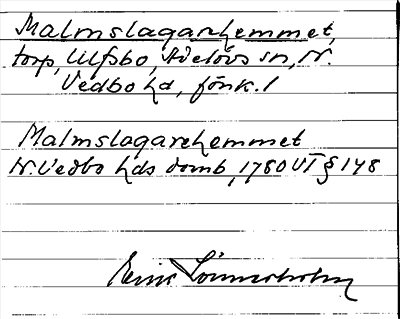 Malmslagarehemmet,
torp, Ulfsbo, Adelövs sn, N.
Vedbo hd, Jönk. l
Malmslagarehemmet
N. Vedbo hds domb, 1780 VT § 148
Eric Lönnerholm